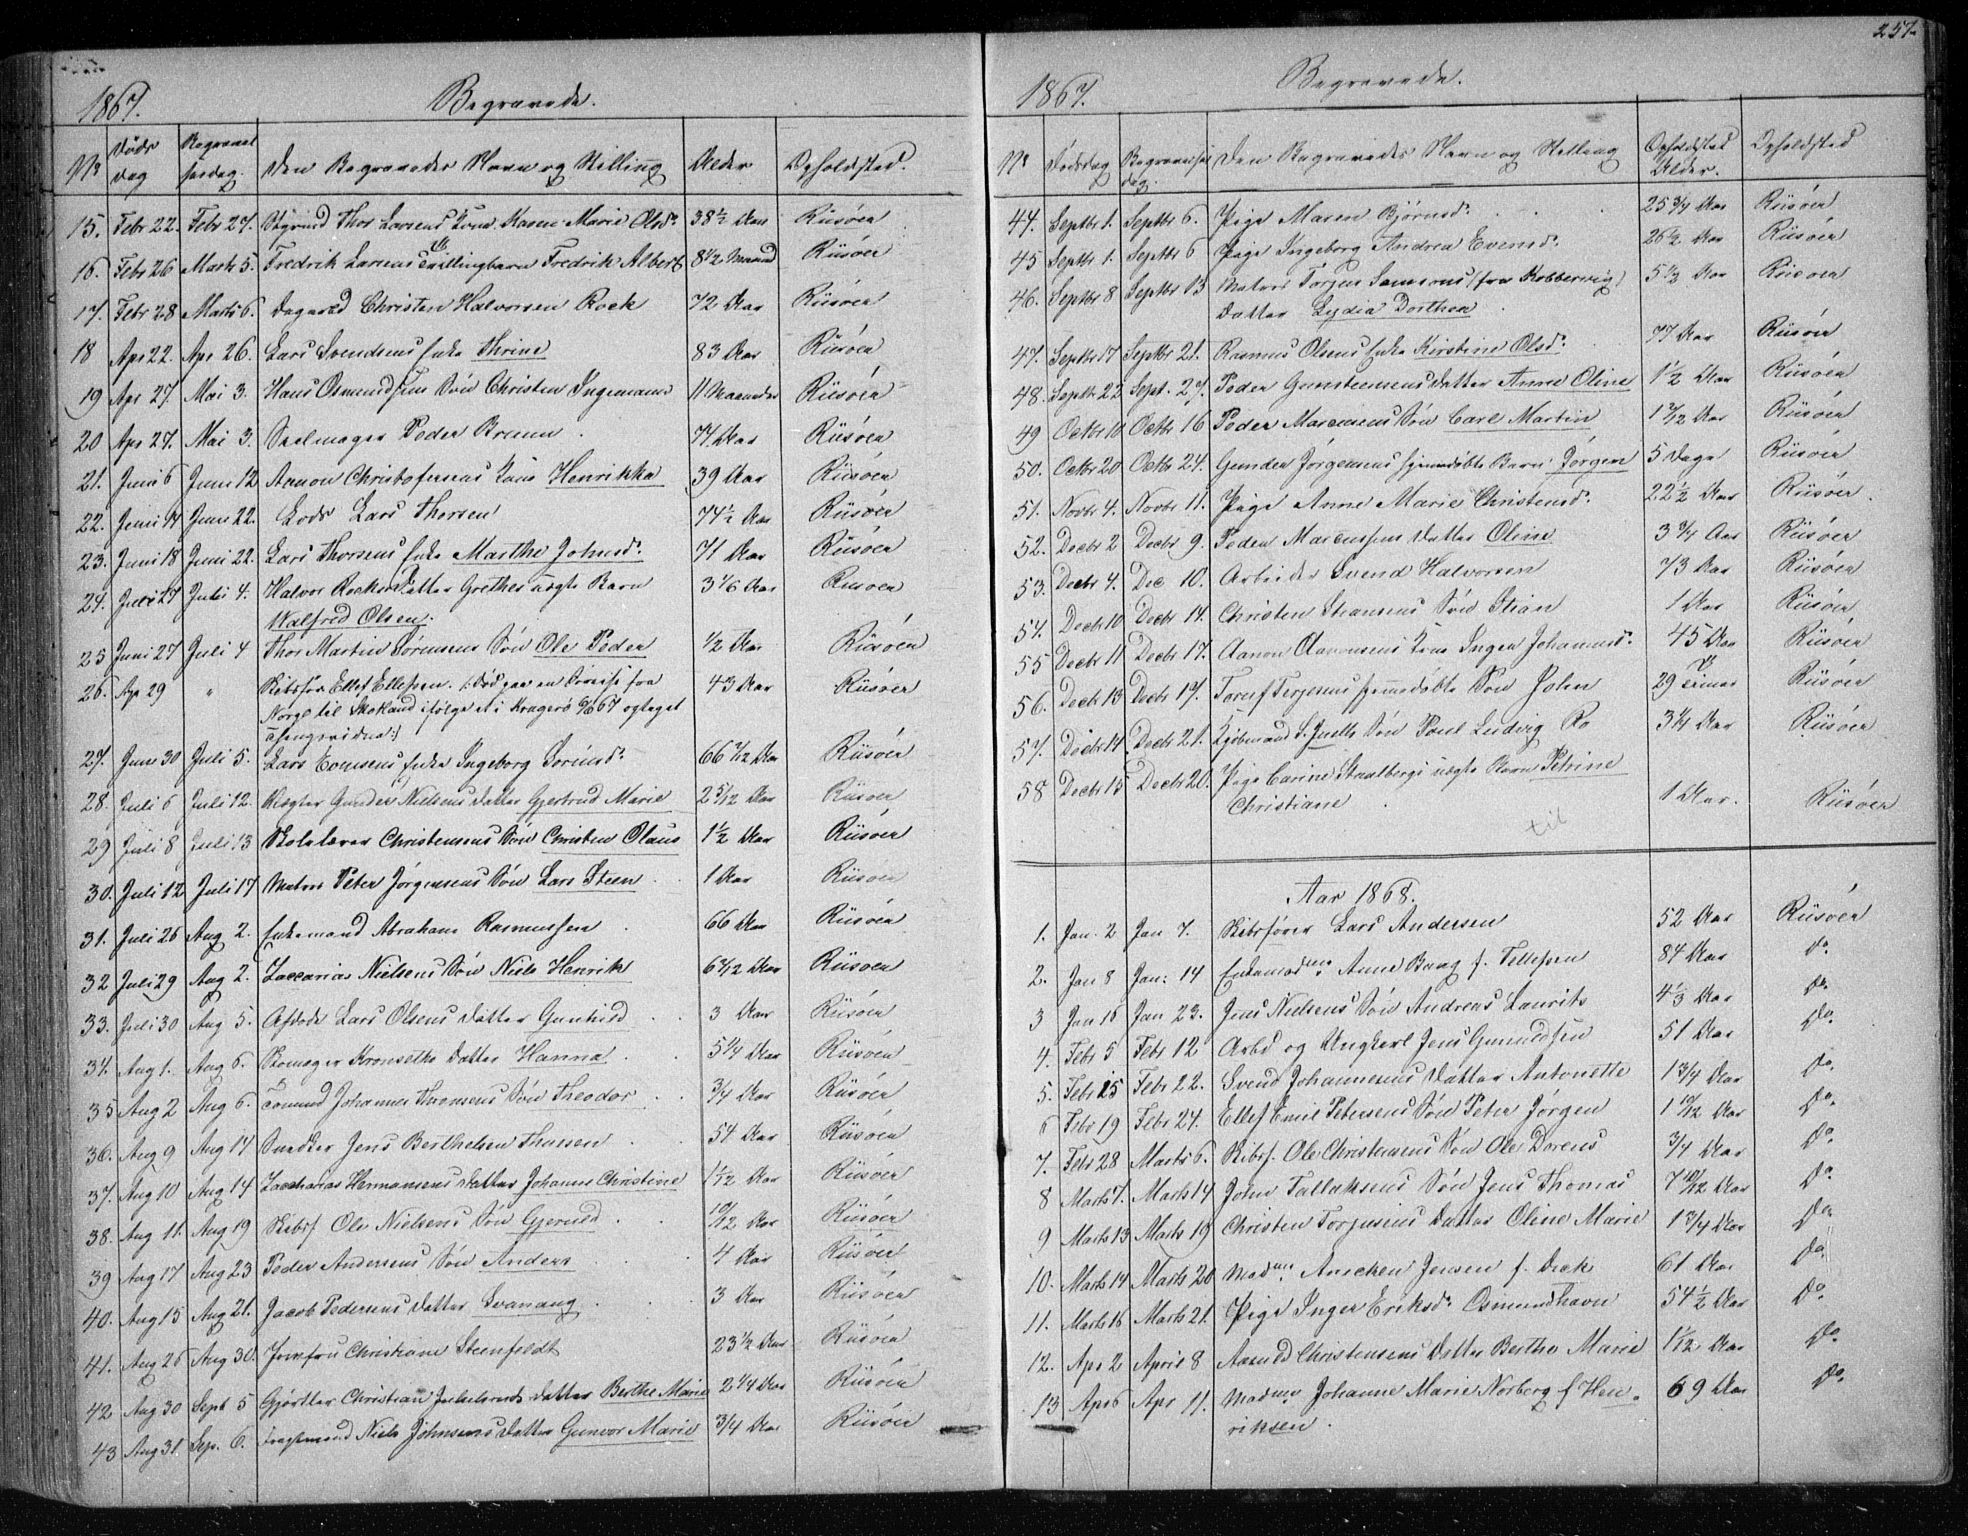 1867. Begravede.
No Døds dag Begravelsesdag. Den Begravedes Navn og Stilling Alder Opholdsted.
15. Febr 22. Febr 27. Thor Larsens Kone Karen Marie Olsdr 38 1/2 Aar Riisøer
16. Febr 26 Marts 5. Fredrik Larsens Tvillingbarn Fredrik Albert 8 1/2 Maaned Riisøer
17. Febr 28 Marts 6. Christen Halvorsen Rock 72 Aar Riisøer
18 Apr 22. Apr 26. Lars Svendsens Enke Thrine 83 Aar Riisøer
19 Apr 27. Mai 3. Hans Osmundsens Søn Christen Ingemann 11 Maaneder Riisøer
20 Apr 27. Mai 3. Seelmager Peder Bruun. 74 Aar Riisøer
21. Juni 6 Juni 12 Aanon Christofersens Kone Henrikka 39 Aar Riisøer
22. Juni 17 Juni 22. Lods Lars Thorsen 74 1/2 Aar Riisøer
23. Juni 18 Juni 22. Lars Thorsens Enke Marthe Johnsdr. 71 Aar Riisøer
24. Juni 27 Juli 4. Halvor Rocks Datter Grethes uægte Barn 3 1/6 Aar Riisøer
Walfred Olsen.
25 Juni 27 Juli 4 Thor Martin Sørensens Søn Ole Peder 1/2 Aar Riisøer
26. Apr 29 " Skibsfør Ellef Ellefsen. (: Død paa en Reise fra 43 Aar Riisøer
Norge til Skotland ifølge et i Kragerø 67 optaget
Thingsvidne:)
27. Juni 30 Juli 5. Lars Evensens Enke Ingeborg Sørensdr. 66 7/12 Aar Riisøer
28. Juli 6 Juli 12. Vægter Gunder Nielsens Datter Gjertrud Marie 2 5/12 Aar Riisøer
29 Juli 8 Juli 13 Skolelærer Christensens Søn Christen Olaus 1 1/2 Aar Riisøer
30. Juli 12 Juli 17 Matros Peter Jørgensens Søn Lars Steen 1 Aar Riisøer
31. Juli 26 Aug 2. Enkemand Abraham Rasmussen 66 Aar Riisøer
32 Juli 29 Aug 2. Zaccarias Nielsens Søn Niels Henrik 6 7/12 Aar Riisøer
33. Juli 30 Aug 5. Afdøde Lars Olsens Datter Gunhild 3 Aar Riisøer
34. Aug 1. Aug 6. Skomager Kronseths Datter Hanna 5 1/4 Aar Riisøer
35 Aug 2 Aug 6. Tømmd Johannes Thomsens Søn Theodor 3/4 Aar Riisøer
36. Aug 9 Aug 14 Snedker Jens Berthelsen Thorsen 54 Aar Riisøer
37. Aug 10 Aug 14 Zacharias Hermansens Datter Johanne Christine 1 1/12 Aar Riisøer
38. Aug 11. Aug 19 Skibsf. Ole Nielsens Søn Gjeruld 10/12 Aar Riisøer
39 Aug 17 Aug 23 Peder Andersens Søn Anders 4 Aar Riisøer
40. Aug 15 Aug 21. Jacob Pedersens Datter Svanaug 3 Aar Riisøer
41. Aug 26 Aug 30. Jomfru Christiane Steenfeldt 23 1/2 Aar Riisøer
42 Aug 30 Sept 5 Gjørtler Christian Datter Berthe Marie 2 1/4 Aar Riisøer
43 Aug 31. Sep. 6. Niels Johnsens Datter Gunvor Marie 3/4 Aar Riisøer
257.
1867. Begravede.
No Dødsdag Begravelsesdag. Den Begravedes Navn og Stilling Opholdsted Alder. Opholdsted
44. Septbr 1. Septbr 6. Pige Maren Bjørnsdr. 25 3/4 Aar Riisøer
45 Septbr 1. Septbr 6 Pige Ingeborg Andrea Evensdr. 26 1/2 Aar Riisøer
46. Septbr 8 Septbr 13 Matros Torjus Samsons (fra Kobbervig) 5 1/2 Aar Riisøer
Datter Lydia Dorthea
47. Septbr 17 Septbr 21. Rasmus Olsens Enke Kirstine Olsdr. 77 Aar Riisøer
48. Septbr 22 Sept. 27. Peder Gunsteensens Datter Anne Oline 1 1/2 Aar Riisøer
49 Octbr 10 Octbr 16 Peder Marcussens Søn Carl Martin 1 7/12 Aar Riisøer
50. Octbr 20 Octbr 24. Gunder Jørgensens hjemmedøbte Barn Jørgen 5 Dage Riisøer
51. Novbr 4. Novbr 11. Pige Anne Marie Christensdr. 22 1/2 Aar Riisøer
52. Decbr 2 Decbr 9. Peder Marcussens Datter Oline 3 3/4 Aar Riisøer
53. Decbr 4. Dec 10. Arbeider Svend Halvorsen 73 Aar Riisøer
54. Decbr 10 Decbr 14. Christen Søn Stian 1 Aar Riisøer
55 Decbr 11 Decbr 17. Aanon Aanonsens Kone Inger Johannesdr. 45 Aar Riisøer
56. Decbr 13 Decbr 19. Toruf Terjesens hjemmedøbte Søn John 29 Timer Riisøer
57. Decbr 14 Decbr 21. Kjøbmand S. Søn Poul Ludvig Ro 3 1/4 Aar Riisøer
58 Decbr 15 Decbr 20. Pige Carine Staalbergs uægte Barn Petrine
Christiane 1 Aar. Riisøer
til
Aar 1868.
1. Jan. 2 Jan 7. Skibsfører Lars Andersen 52 Aar Riisøer
2. Jan 8 Jan: 14 Enkemadme Anne Baag f. Tellefsen 84 Aar Do.
3 Jan 16 Jan 23. Jens Nielsens Søn Andreas Laurits 4 1/3 Aar Do.
4. Febr 5 Febr 12 Arbd og Ungkarl Jens Gunuldsen 51 Aar Do.
5. Febr 15 Febr 22. Svend Johannesens Datter Antonette 1 3/4 Aar Do.
6 Febr 19 Febr 24. Ellef Emil Petersens Søn Peter Jørgen 1 10/12 Aar Do.
7. Febr 28 Marts 6. Skibsf. Ole Christensens Søn Ole Dorens 3/4 Aar Do.
8 Marts 7. Marts 14 John Tallaksens Søn Jens Thomas 7 10/12 Aar Do.
9 Marts 13 Marts 19 Christen Torjusens Datter Oline Marie 1 3/4 Aar Do.
10. Marts 14 Marts 20 Madme Anichen Jensen f. Dick 61 Aar Do.
11. Marts 16 Marts 21. Pige Inger Eriksdr Osmundhavn 54 1/2 Aar Do.
12. Apr 2 April 8 Aasuld Christensens Datter Berthe Marie 1 1/12 Aar Do.
13 Apr 6 Apr 11. Madme Johanne Marie Norberg f. Hen- 69 Aar Do.
riksen.